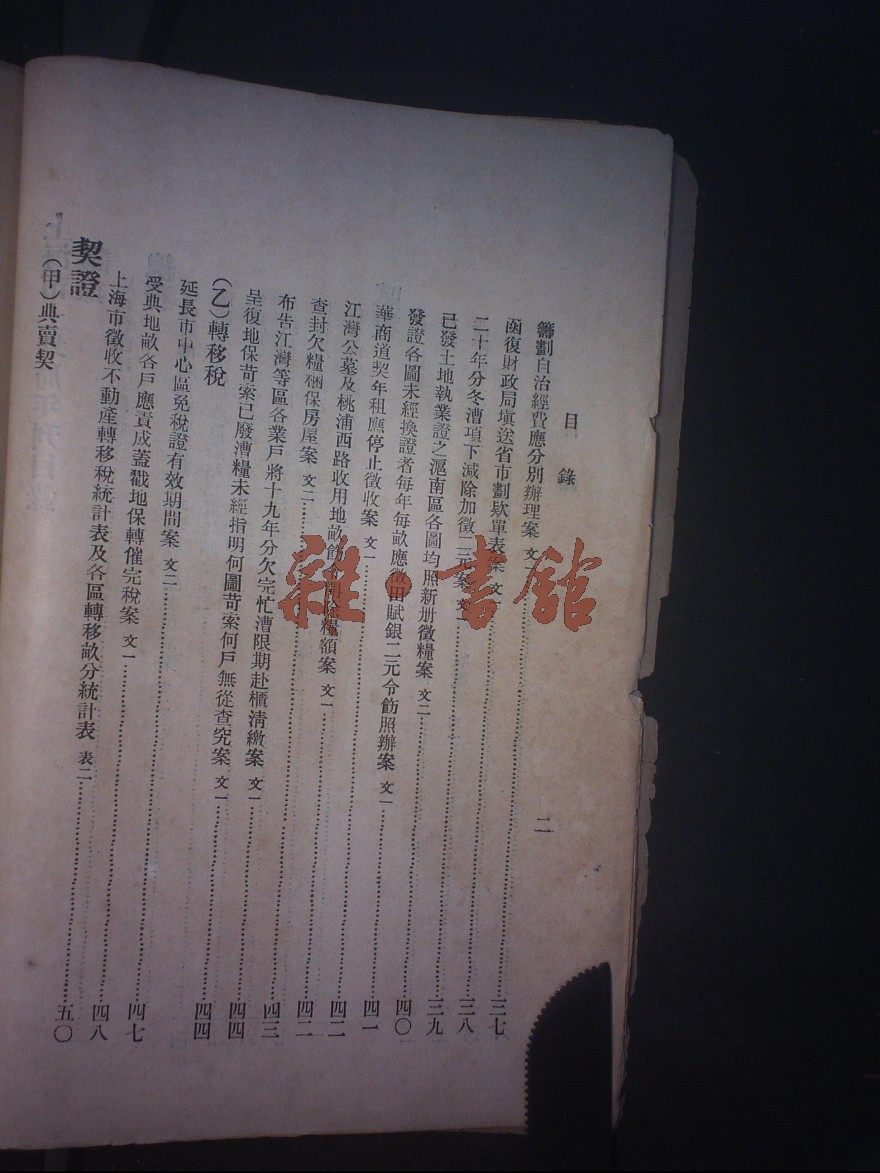 目錄
二
籌劃自治經費應分別辦理案 文一……三七
函復財政局塡送省市劃欵單表案 文一……三八
二十年分冬漕項下減除加徵二三元案 文一……三九
已發土地執業證之滬南區各圖均照新册徵糧案 文二……四〇
發證各圖未經換證者每年每畝應徵田賦銀二元令飭照辦案 文一……四一
華商道契年租應停止徵收案 文一……四二
江灣公墓及桃浦西路收用地畝飭令開除糧額案 文一……四二
查封欠糧稇保房屋案 文二……四三
布告江灣等區各業戶將十九年分欠完忙漕限期赴櫃清繳案 文一……四四
呈復地保苛索已廢漕糧未經指明何圖苛案何戶無從查究案 文一……四四
(乙)轉移稅
延長市中心區免稅證有效期間案 文二……四七
受典地畝各戶應責成蓋戳地保轉催完稅案 文一……四八
上海市徵收不動產轉移稅統計表及各區轉移畝分統計表 表二……五〇
契證
(甲)典賣契
雜·書館